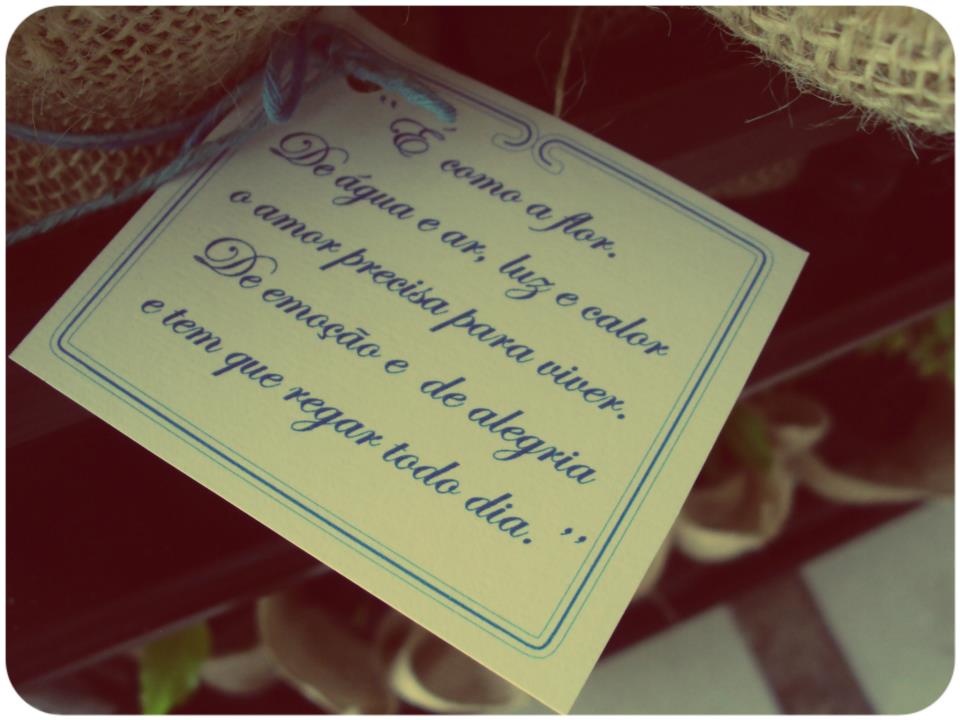 “É como a flor.
De água e ar, luz e calor
o amor precisa para viver.
De emoção e de alegria
e tem que regar todo dia. ”